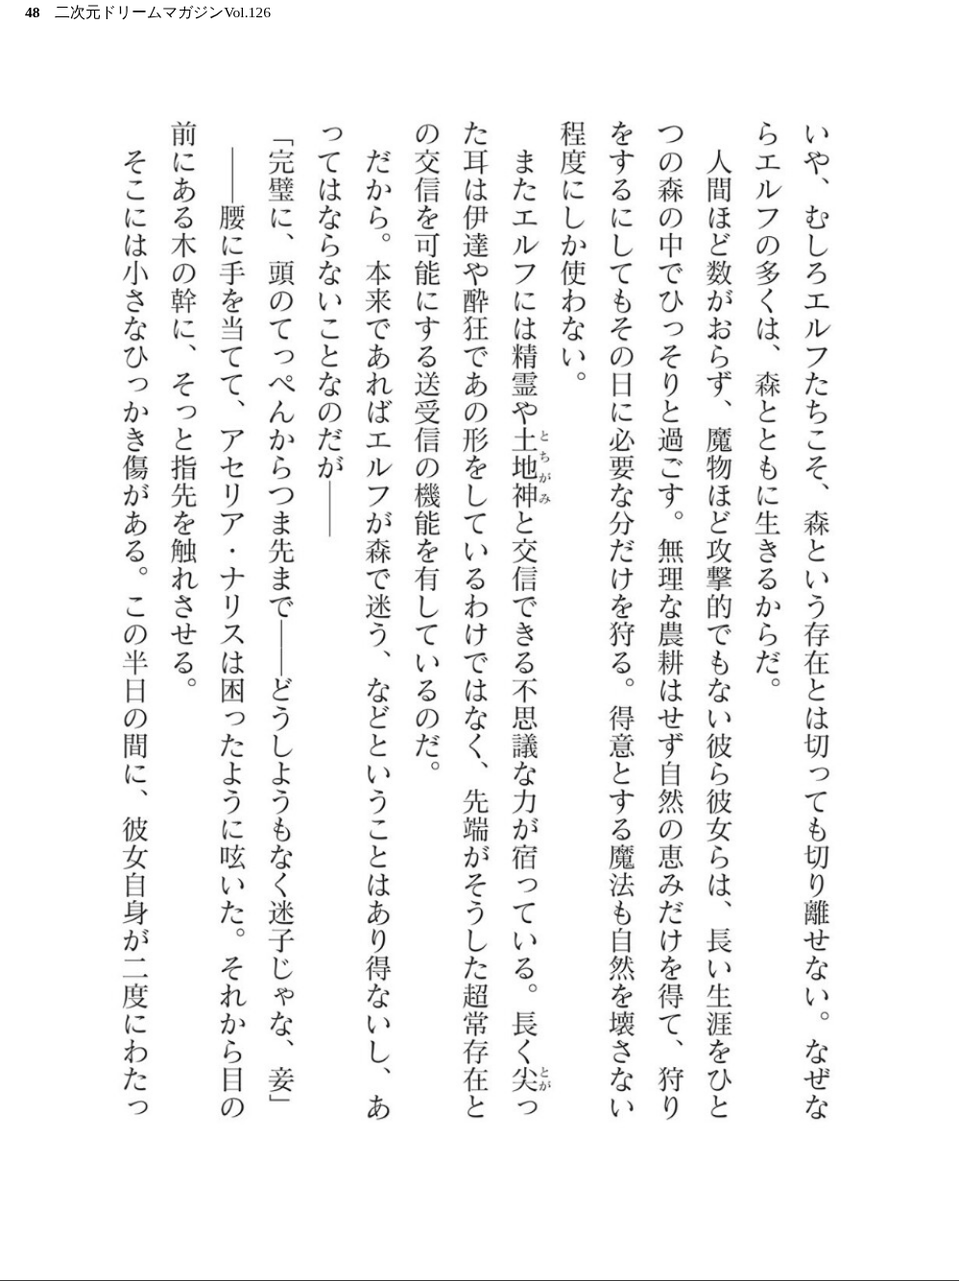 48 二次元ドリームマガジンVol.126
いや、むしろエルフたちこそ、森という存在とは切っても切り離せない。なぜな
らエルフの多くは、森とともに生きるからだ。
人間ほど数がおらず、魔物ほど攻撃的でもない彼ら彼女らは、長い生涯をひと
つの森の中でひっそりと過ごす。無理な農耕はせず自然の恵みだけを得て、狩り
をするにしてもその日に必要な分だけを狩る。得意とする魔法も自然を壊さない
程度にしか使わない。
またエルフには精霊や土地神とちがみと交信できる不思議な力が宿っている。長く尖とがっ
た耳は伊達や酔狂であの形をしているわけではなく、先端がそうした超常存在と
の交信を可能にする送受信の機能を有しているのだ。
だから。本来であればエルフが森で迷う、などということはあり得ないし、あ
ってはならないことなのだが――
「完璧に、頭のてっぺんからつま先まで――どうしようもなく迷子じゃな、妾」
――腰に手を当てて、アセリア・ナリスは困ったように呟いた。それから目の
前にある木の幹に、そっと指先を触れさせる。
そこには小さなひっかき傷がある。この半日の間に、彼女自身が二度にわたっ